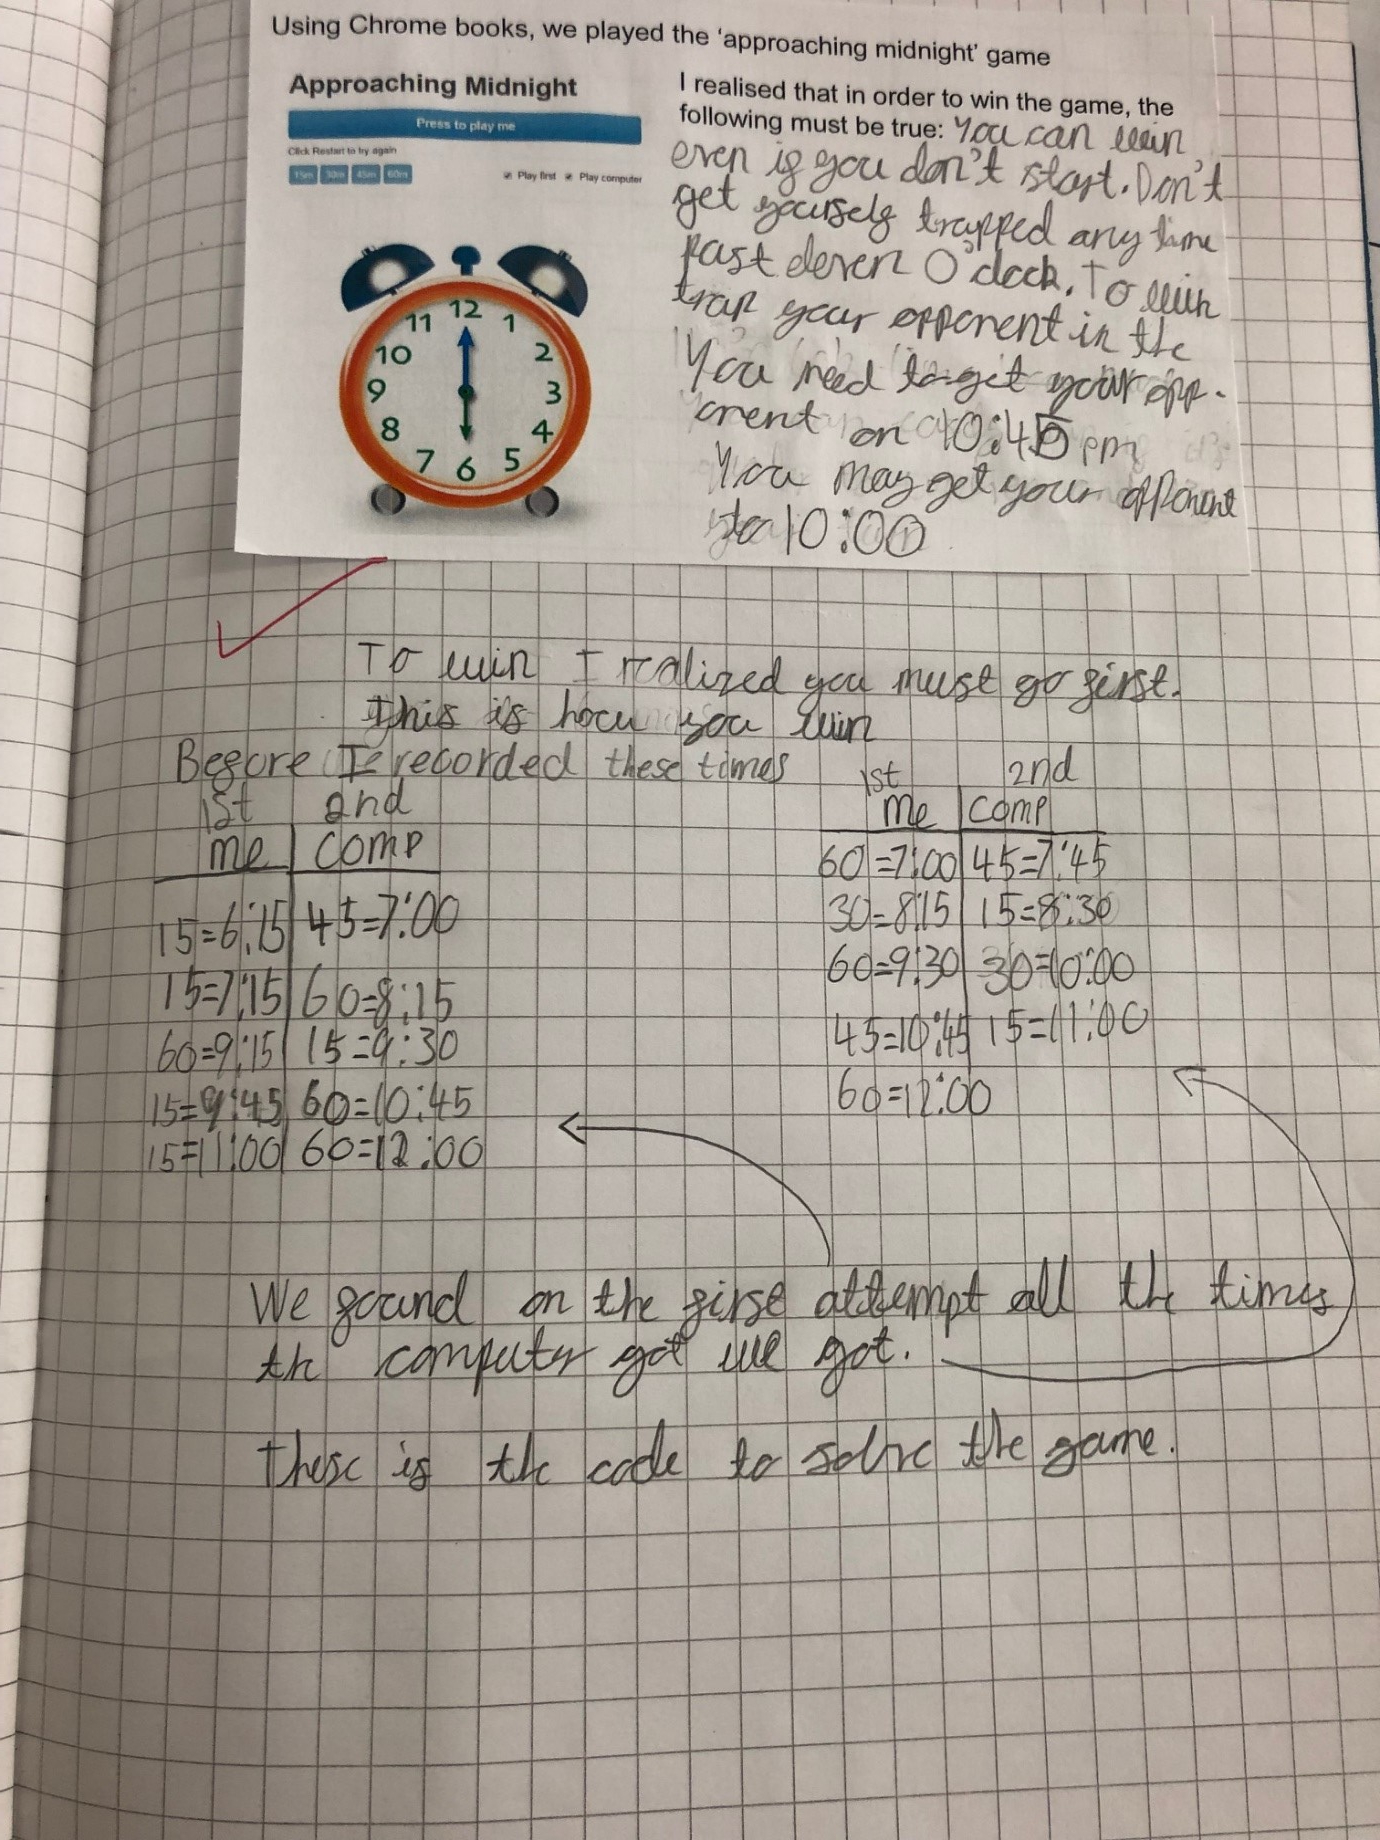 Using Chrome books, we played the 'approaching midnight' game
Approaching Midnight
Press to play me
Click Restart to try again
15m 30m 45m 60m
Play first Play computer
12
11 1
10 2
9 3
8 4
7 6 5
I realised that in order to win the game, the
following must be true: You can win
even if you don't start. Don't
get yourself trapped any time
past eleven O'clock. To win
trap your opponent in the
You need to get your opp-
onent on 10:45 pm
You may get your opponent
to 10:00
To win I realized you must go first.
this is how you win
Before I recorded these times
1st 2nd
me comp
15=6:15 45=7:00
15=7:15 60=8:15
60=9:15 15=9:30
15=9:45 60=10:45
15=11:00 60=12:00
1st 2nd
Me Comp
60=7:00 45=7:45
30=8:15 15=8:30
60=9:30 30=10:00
45=10:45 15=11:00
60=12:00
We found on the first attempt all the times
th computer got we got.
These is the code to solve the game.